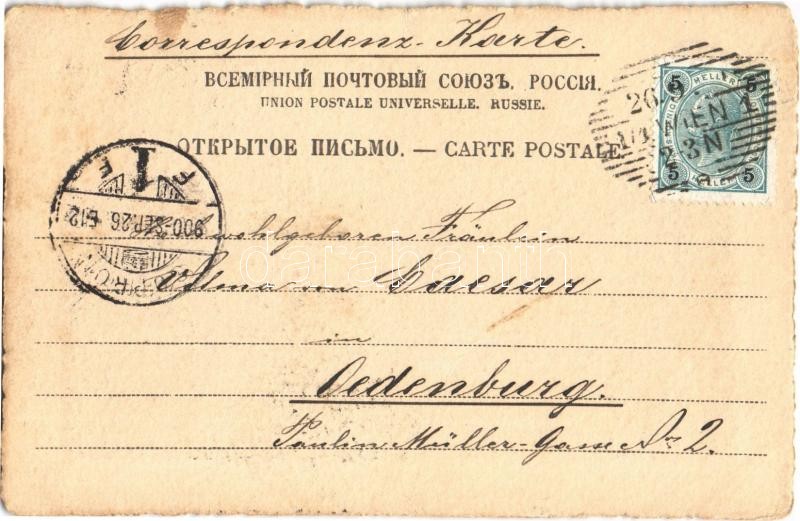 Correspondenz-Karte.
ВСЕМІРНЫЙ ПОЧТОВЫЙ СОЮЗЪ. РОССІЯ.
UNION POSTALE UNIVERSELLE. RUSSIE.
ОТКРЫТОЕ ПИСЬМО. — CARTE POSTALE.
5 HELLER 5
26
WIEN 1
2-3N
a
5 5
1
F E
900 SEP. 26
SOPRON
wohlgeboren Fräulein
Vilma von Caesar
in
Oedenburg.
Paulin Müller-Gasse No 2.
darabanth